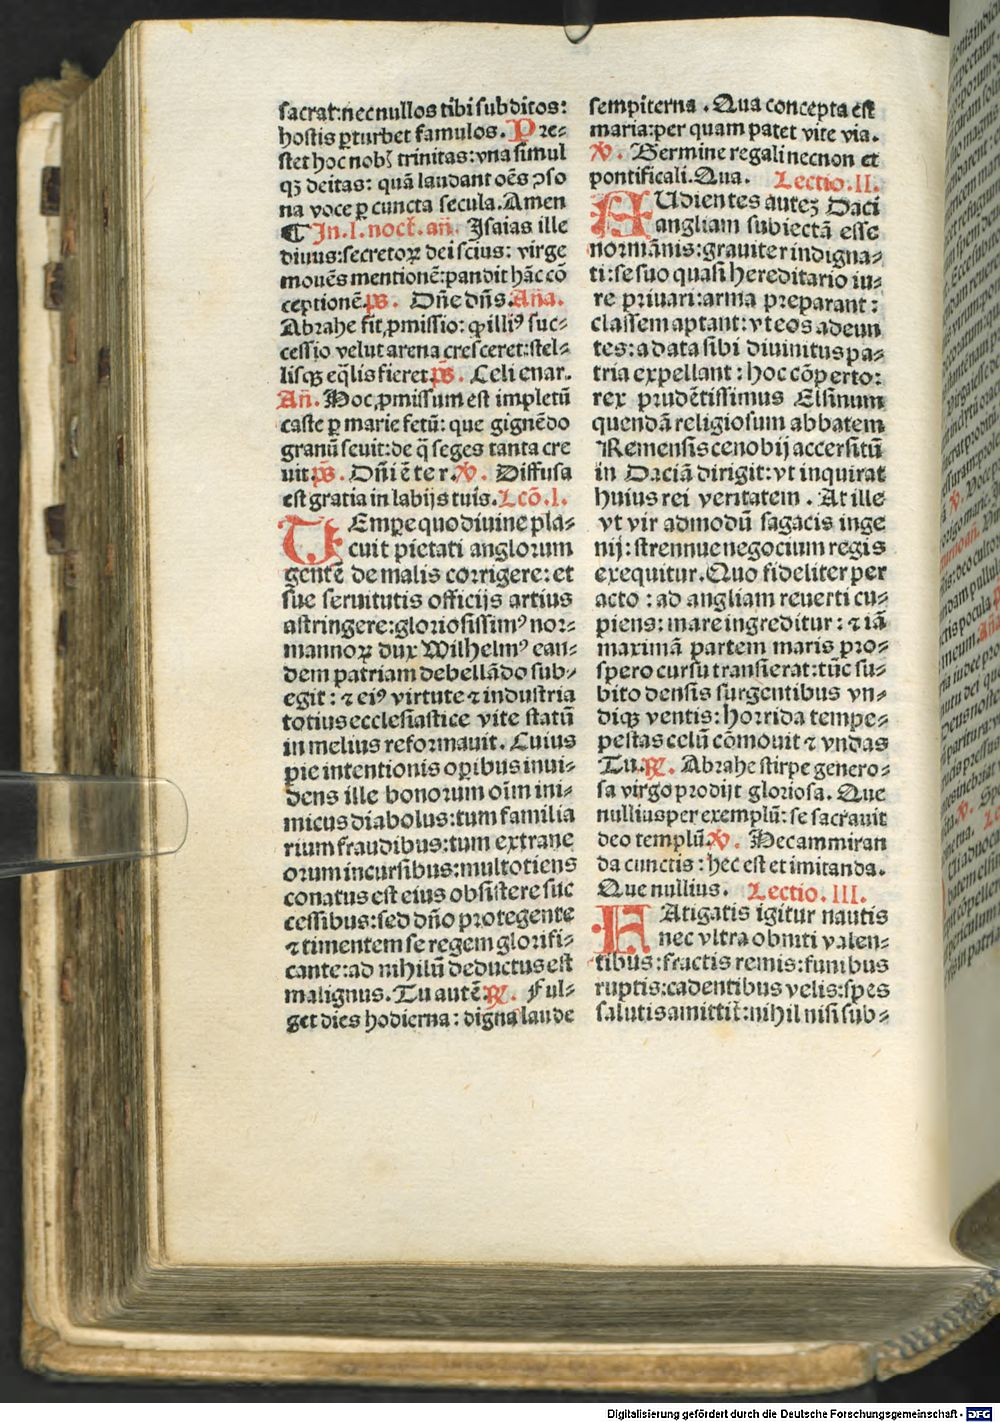 sacrat:nec nullos tibi subditos:
hostis ꝑturbet famulos. Pre⸗
stet hoc nobꝭ trinitas: vna simul
qꝫ deitas: quā laudant oēs ꝯso
na voce ꝑ cuncta secula. Amen
¶ In .I. nocť. añ. Isaias ille
diuus: secretoꝝ dei scius: virge
mouēs mentionē: pandit hāc cō
ceptionē. ps̄. Dñe dñs. Aña.
Abrahe fit ꝓmissio: ꝙ illiꝰ suc⸗
cessio velut arena cresceret: stel⸗
lisqꝫ eq̄lis fieret. ps̄. Celi enar.
Añ. Hoc ꝓmissum est impletū
caste ꝑ marie fetū: que gignēdo
granū seuit: de q̄ seges tanta cre
uit. ps̄. Dñi ē ter. ℣. Diffusa
est gratia in labijs tuis. Lcō. I.
TEmpe quo diuine pla⸗
cuit pietati anglorum
gentē de malis corrigere: et
sue seruitutis officijs artius
astringere: gloriosissimꝰ nor⸗
mannoꝝ dux Wilhelmꝰ ean⸗
dem patriam debellādo sub⸗
egit: ⁊ eiꝰ virtute ⁊ industria
totius ecclesiastice vite statū
in melius reformauit. Cuius
pie intentionis oꝑibus inui⸗
dens ille bonorum oīm ini⸗
micus diabolus: tum familia
rium fraudibus: tum extrane
orum incursibus: multotiens
conatus est eius obsistere suc
cessibus: sed dño protegente
⁊ timentem se regem glorifi⸗
cante: ad nihilū deductus est
malignus. Tu autē. ℟. Ful⸗
get dies hodierna: digna laude
sempiterna. Qua concepta est
maria: per quam patet vite via.
℣. Germine regali necnon et
pontificali. Qua. Lectio. II.
AUdientes auteꝫ Daci
angliam subiectā esse
normānis: grauiter indigna⸗
ti: se suo quasi hereditario iu⸗
re priuari: arma preparant:
classem aptant: vt eos adeun
tes: a data sibi diuinitus pa⸗
tria expellant: hoc cōperto:
rex prudētissimus Elsinum
quendā religiosum abbatem
Remensis cenobij accersitū
in Daciā dirigit: vt inquirat
huius rei veritatem. At ille
vt vir admodū sagacis inge
nij: strennue negocium regis
exequitur. Quo fideliter per
acto: ad angliam reuerti cu⸗
piens: mare ingreditur: ⁊ iā
maximā partem maris pro⸗
spero cursu transierat: tūc su⸗
bito densis surgentibus vn⸗
diqꝫ ventis: horrida tempe⸗
pestas celū cōmouit ⁊ vndas
Tu. ℟. Abrahe stirpe genero⸗
sa virgo prodijt gloriosa. Que
nullius per exemplū: se sacrauit
deo templū. ℣. Hec ammiran
da cunctis: hec est et imitanda.
Que nullius. Lectio. III.
FAtigatis igitur nautis
nec vltra obniti valen⸗
tibus: fractis remis: funibus
ruptis: cadentibus velis: spes
salutis amittiť: nihil nisi sub⸗
Digitalisierung gefördert durch die Deutsche Forschungsgemeinschaft - DFG